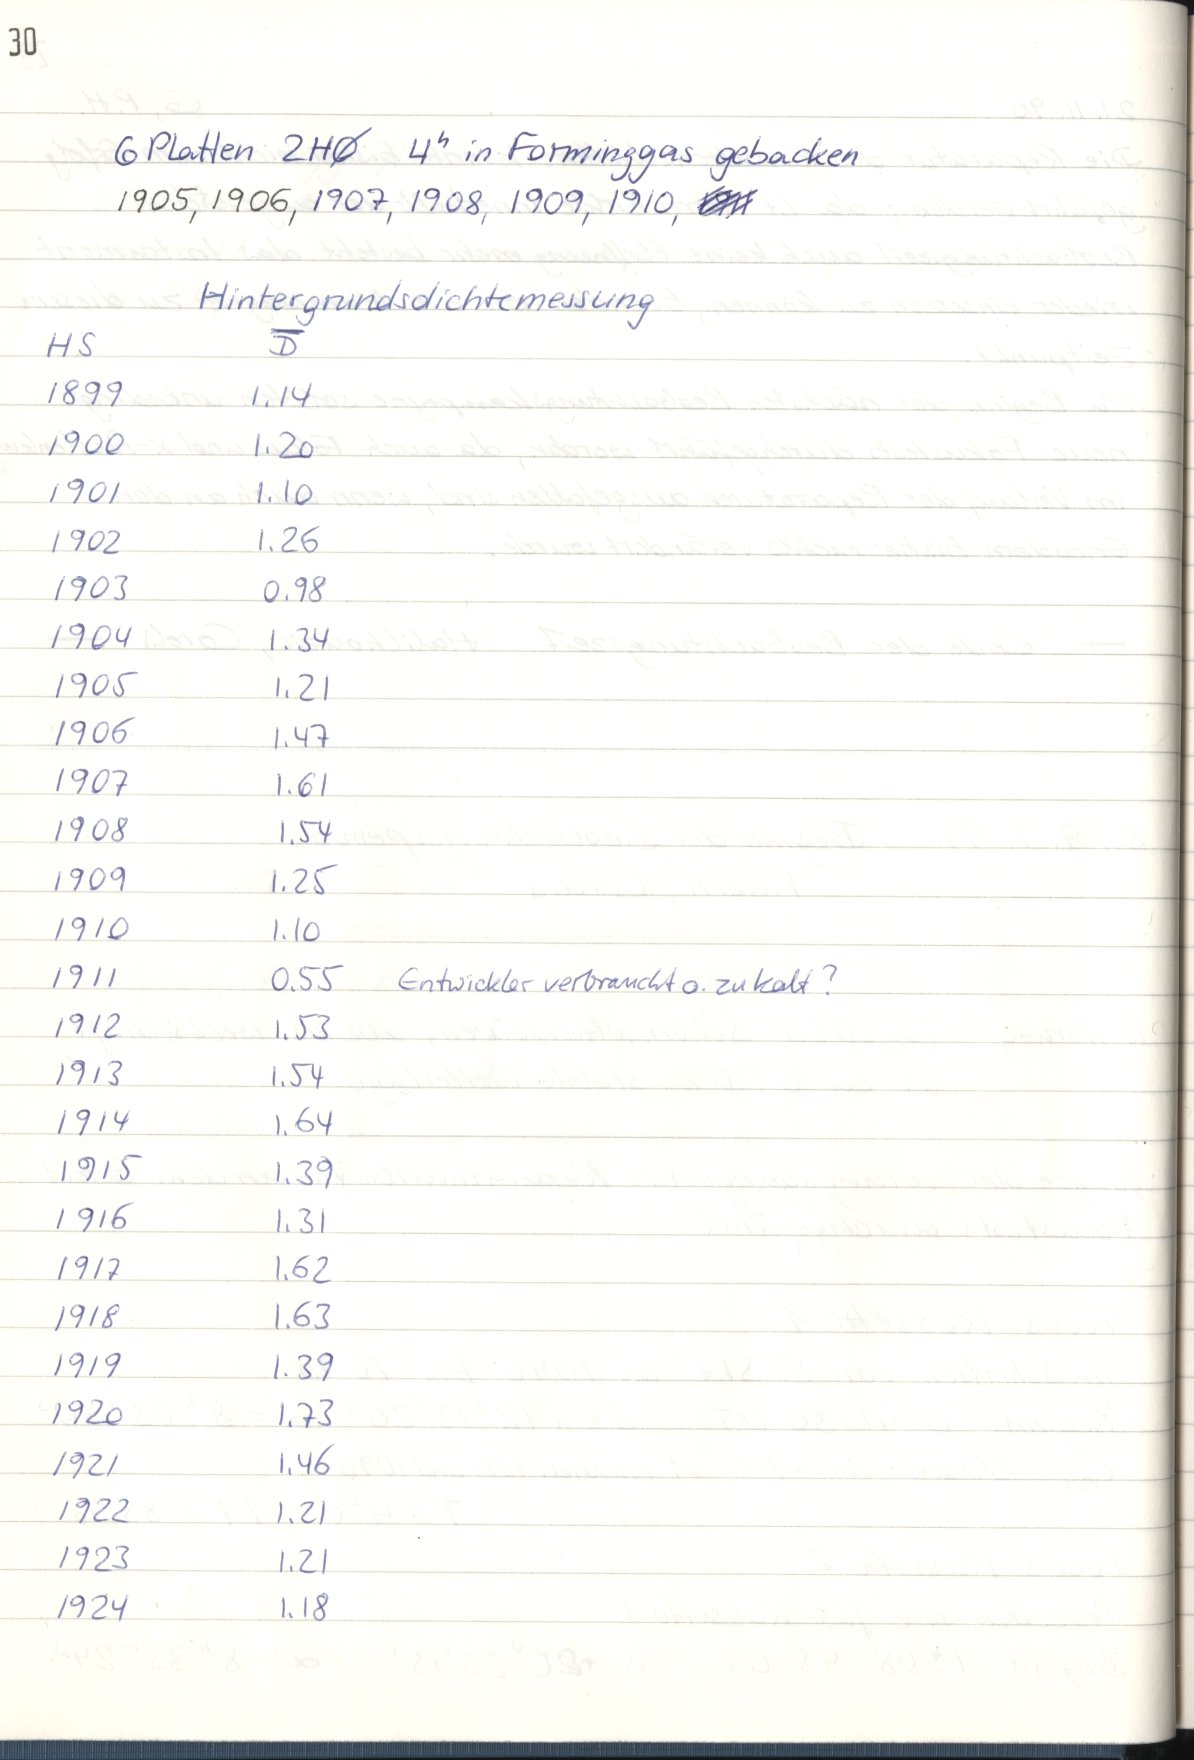 30
6 Platten 2HØ 4h in Forminggas gebacken
1905, 1906, 1907, 1908, 1909, 1910,
Hintergrundsdichtemessung
HS D̅
1899 1.14
1900 1.20
1901 1.10
1902 1.26
1903 0.98
1904 1.34
1905 1.21
1906 1.47
1907 1.61
1908 1.54
1909 1.25
1910 1.10
1911 0.55 Entwickler verbraucht o. zu kalt?
1912 1.53
1913 1.54
1914 1.64
1915 1.39
1916 1.31
1917 1.62
1918 1.63
1919 1.39
1920 1.73
1921 1.46
1922 1.21
1923 1.21
1924 1.18